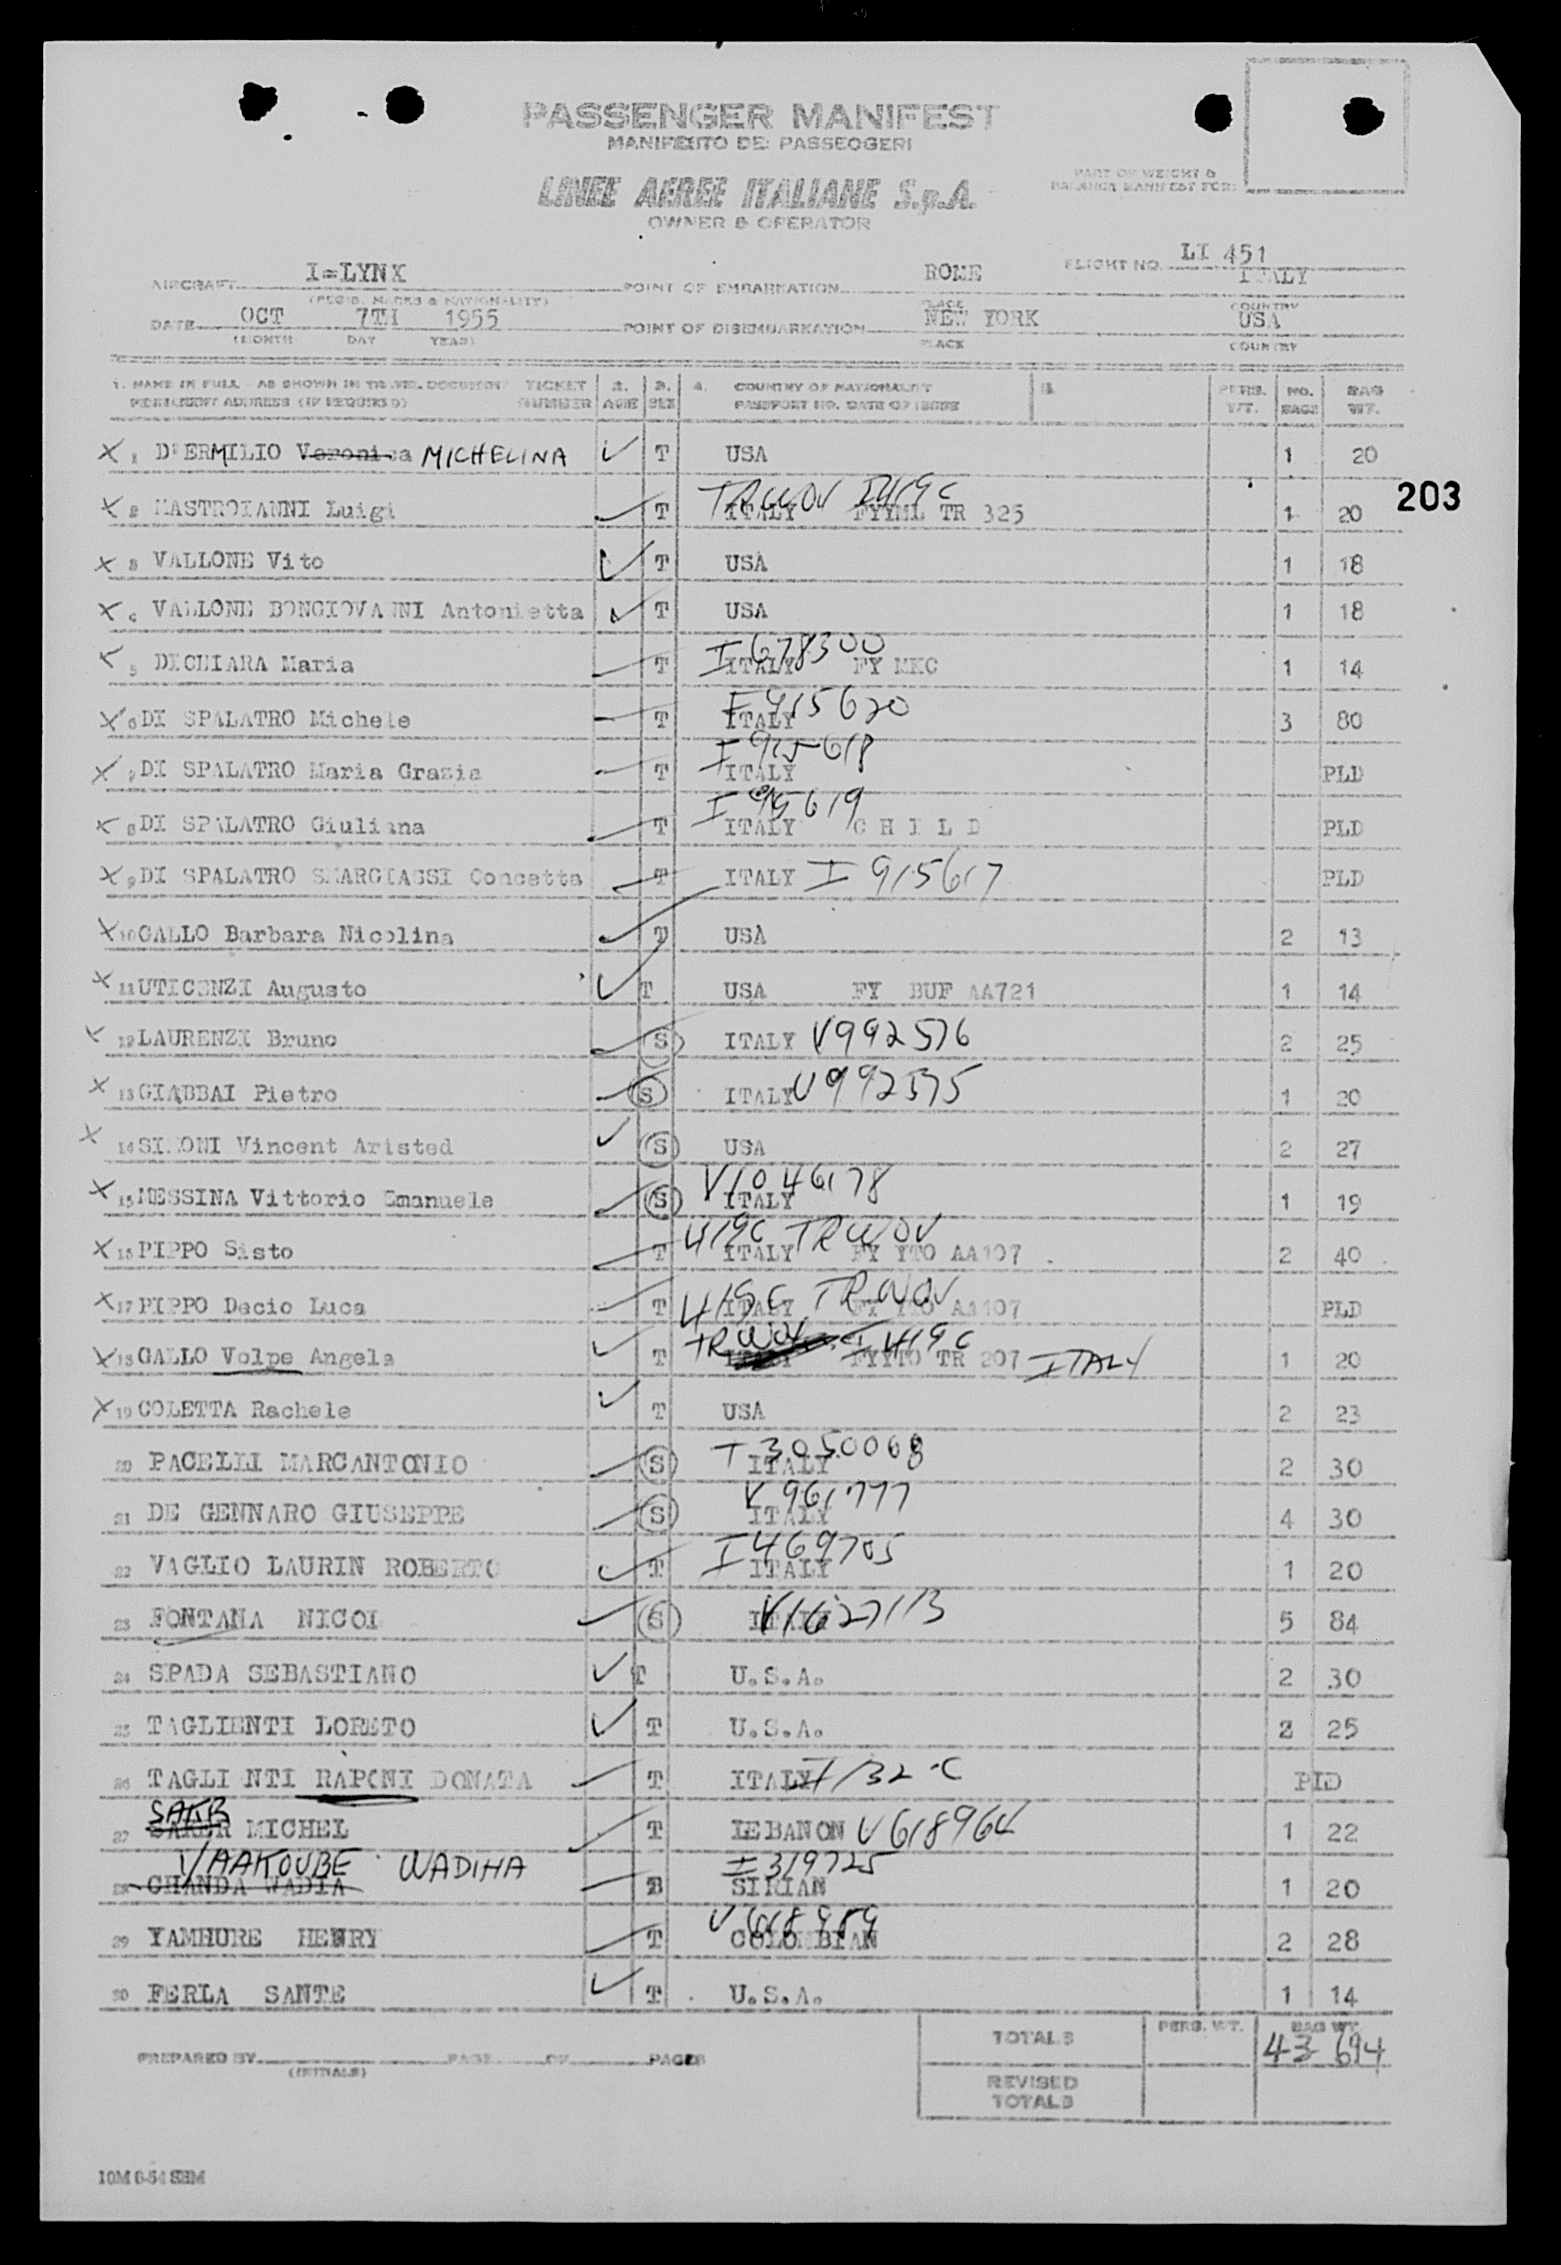 PASSENGER MANIFEST
MANIFESTO DEI PASSEGGERI
LINEE AEREE ITALIANE S.p.A.
OWNER & OPERATOR
PART OF WEIGHT &
BALANCE MANIFEST FOR:
AIRCRAFT I=LYNX POINT OF EMBARKATION ROME ITALY FLIGHT NO. LI 451
(REGIS. MARKS & NATIONALITY) PLACE COUNTRY
DATE OCT 7TH 1955 POINT OF DISEMBARKATION NEW YORK USA
(MONTH DAY YEAR) PLACE COUNTRY
1. NAME IN FULL AS SHOWN IN TRAVEL DOCUMENT TICKET 2. 3. 4. COUNTRY OF NATIONALITY 5. PERS. NO. BAG
PERMANENT ADDRESS (IF REQUIRED) NUMBER AGE SEX PASSPORT NO. DATE OF ISSUE WT. BAGS WT.
X 1 D'ERMILIO Veronica MICHELINA ✓ T USA 1 20
203
TRWOV I419C
X 2 MASTROIANNI Luigi T ITALY FYYML TR 325 1 20
X 3 VALLONE Vito ✓ T USA 1 18
X 4 VALLONE BONGIOVANNI Antonietta ✓ T USA 1 18
I678300
X 5 DECHIARA Maria T ITALY FY MKC 1 14
I915620
X 6 DI SPALATRO Michele T ITALY 3 80
I915618
X 7 DI SPALATRO Maria Grazia T ITALY PLD
I 915619
X 8 DI SPALATRO Giuliana T ITALY C H I L D PLD
X 9 DI SPALATRO SMARGIASSI Concetta T ITALY I 915617 PLD
X 10 GALLO Barbara Nicolina ✓ T USA 2 13
X 11 UTICENZI Augusto ✓ T USA FY BUF AA721 1 14
X 12 LAURENZI Bruno S ITALY V992576 2 25
X 13 GIABBAI Pietro S ITALY V992575 1 20
X 14 SIMONI Vincent Aristed ✓ S USA 2 27
V1046178
X 15 MESSINA Vittorio Emanuele S ITALY 1 19
419C TRWOV
X 16 PIPPO Sisto T ITALY FY YTO AA107 2 40
419C TRWOV
X 17 PIPPO Decio Luca T ITALY FY YTO AA107 PLD
TRWOV I419C
X 18 GALLO Volpe Angela ✓ T ITALY FYYTO TR 207 ITALY 1 20
X 19 COLETTA Rachele ✓ T USA 2 23
I 3050068
20 PACELLI MARCANTONIO S ITALY 2 30
V 961777
21 DE GENNARO GIUSEPPE S ITALY 4 30
I469705
22 VAGLIO LAURIN ROBERTO T ITALY 1 20
23 FONTANA NICOL S ITALY V1627113 5 84
24 SPADA SEBASTIANO ✓ T U.S.A. 2 30
25 TAGLIENTI LORETO ✓ T U.S.A. 2 25
26 TAGLI NTI RAPONI DONATA T ITALY I132-C PLD
SAKR
27 SAKER MICHEL T LEBANON V618964 1 22
YAAKOUBE WADIHA I 319725
28 CHANDA WADIA B SIRIAN 1 20
V618959
29 YAMHURE HENRY T COLOMBIAN 2 28
30 FERLA SANTE ✓ T U.S.A. 1 14
TOTALS PERS. WT. BAG WT.
43 694
PREPARED BY PAGE OF PAGES
(INITIALS)
REVISED
TOTALS
10M 6-54 SBM